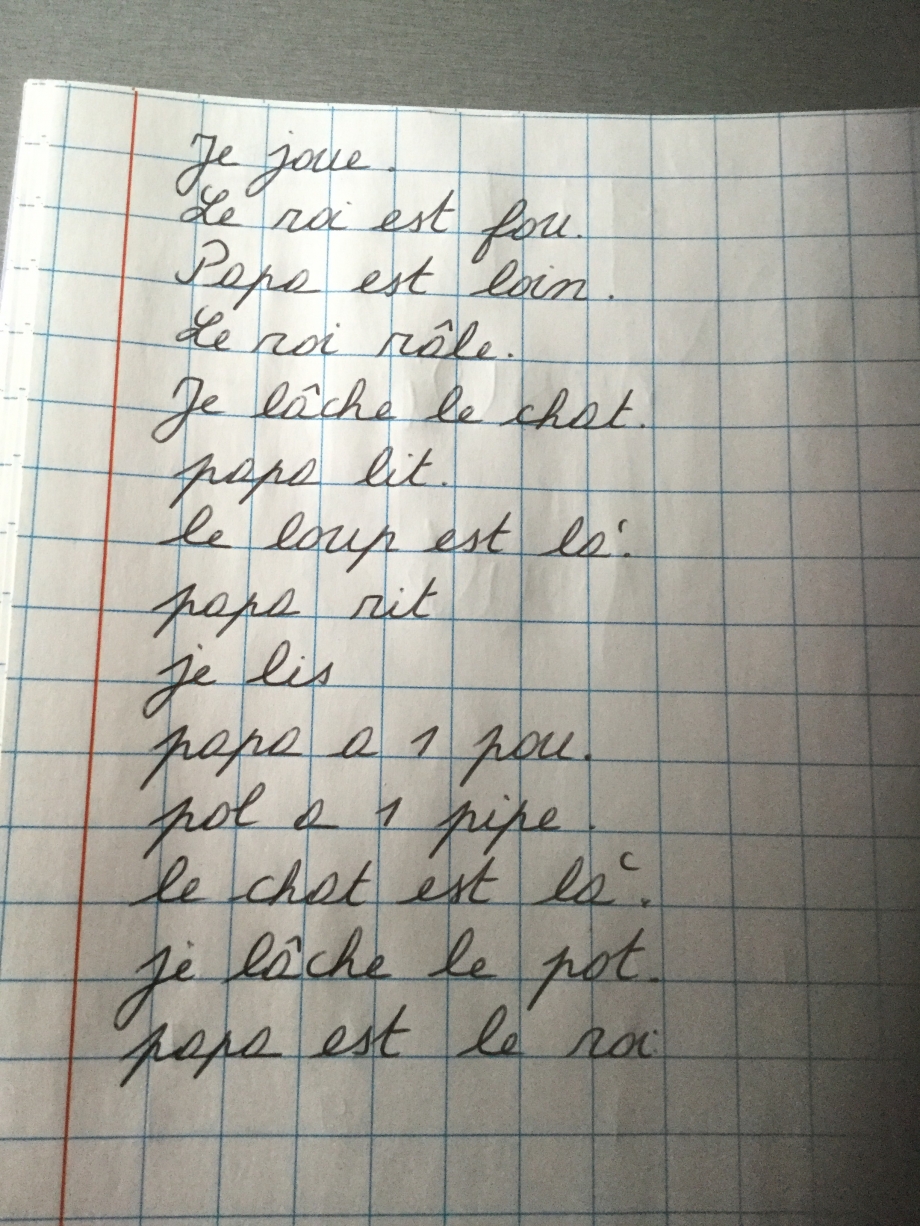 Je joue.
Le roi est fou.
Papa est loin.
Le roi râle.
Je lâche le chat.
papa lit.
le loup est là.
papa rit
je lis
papa a 1 pou.
pol a 1 pipe.
le chat est là.
je lâche le pot.
papa est le roi